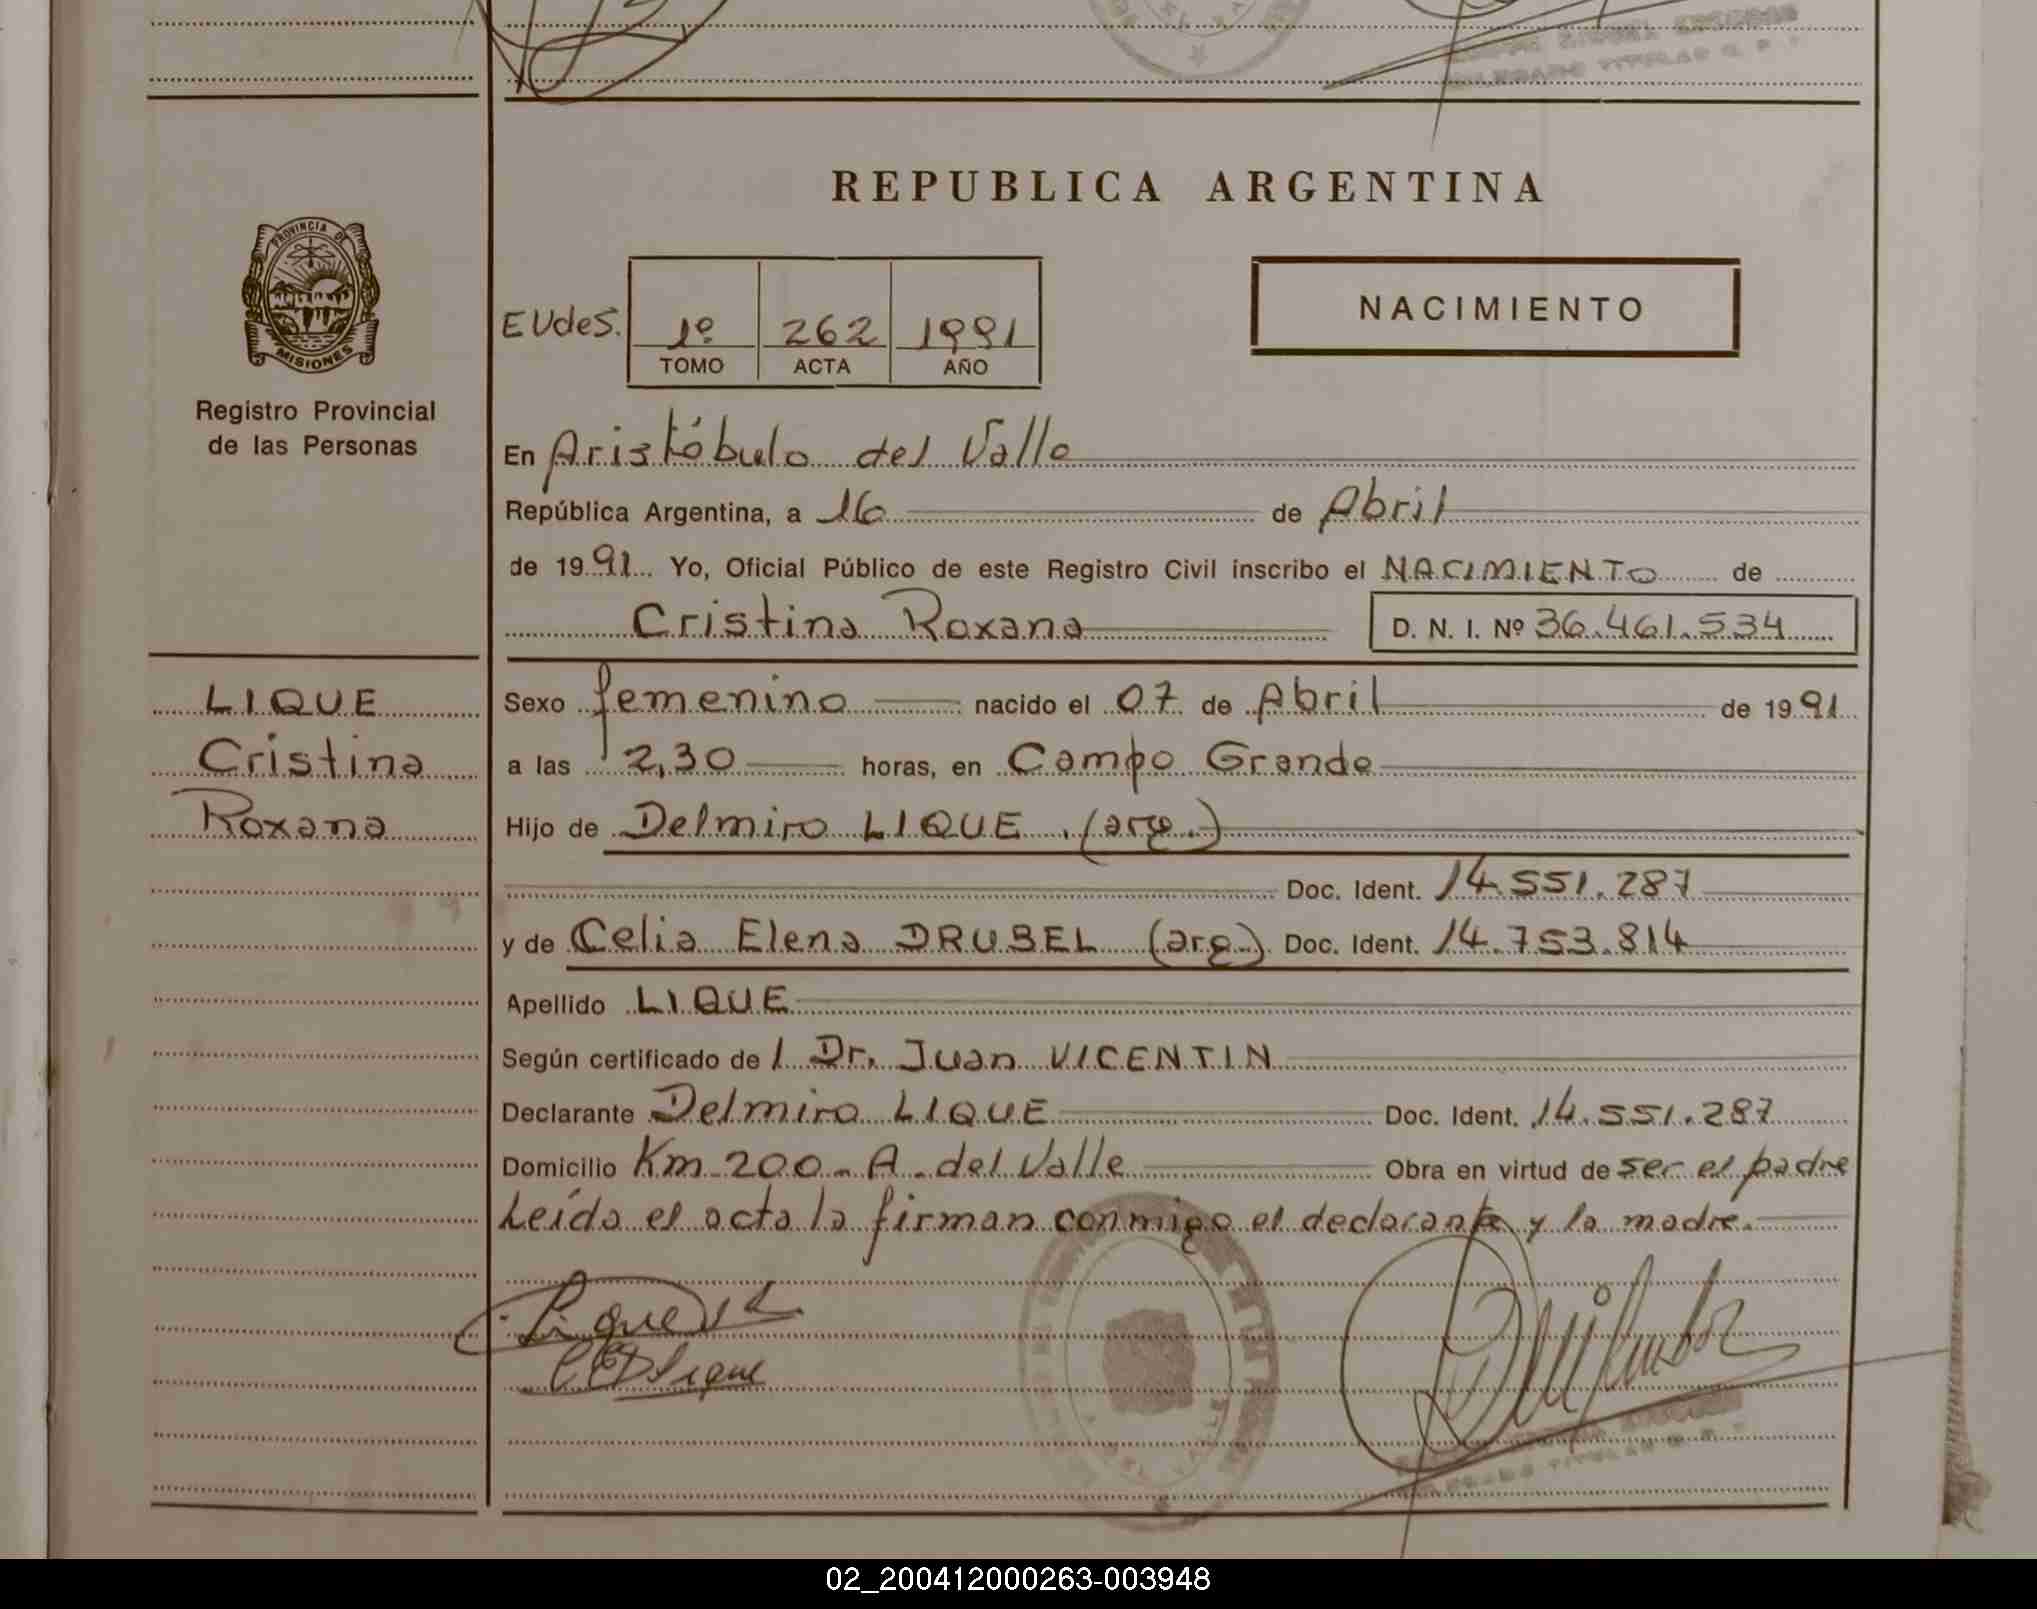 REPUBLICA ARGENTINA
PROVINCIA DE
MISIONES
Registro Provincial
de las Personas
EUdeS.
1º 262 1991
TOMO ACTA AÑO
NACIMIENTO
En Aristóbulo del Valle
República Argentina, a 16 de Abril
de 1991 Yo, Oficial Público de este Registro Civil inscribo el NACIMIENTO de
Cristina Roxana D. N. I. Nº 36.461.534
LIQUE
Cristina
Roxana
Sexo femenino nacido el 07 de Abril de 1991
a las 2,30 horas, en Campo Grande
Hijo de Delmiro LIQUE (arg.)
Doc. Ident. 14.551.287
y de Celia Elena DRUBEL (arg.) Doc. Ident. 14.753.814
Apellido LIQUE
Según certificado de l Dr. Juan VICENTIN
Declarante Delmiro LIQUE Doc. Ident. 14.551.287
Domicilio Km 200 - A. del Valle Obra en virtud de ser el padre
Leída el acta la firman conmigo el declarante y la madre.
Lique
02_200412000263-003948